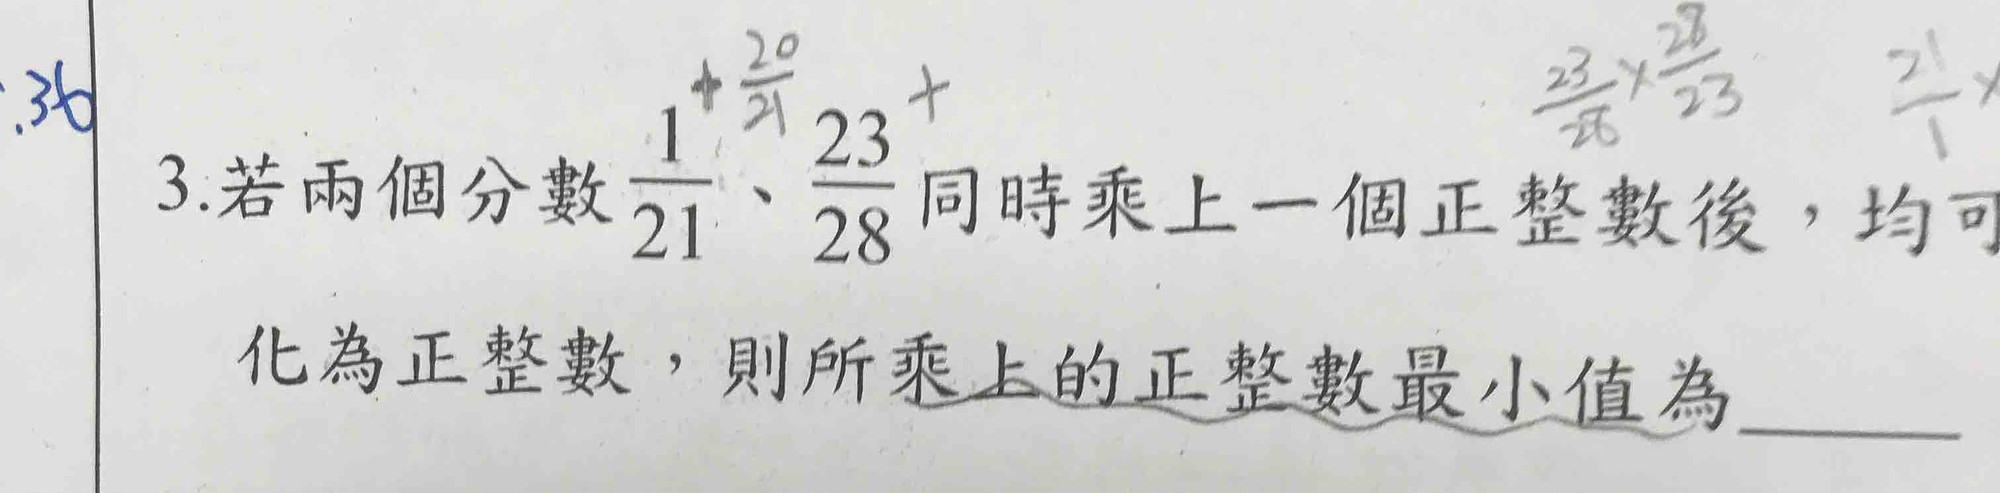 .36
+ 20/21 +
23/28 × 28/23
21/1 ×
3.若兩個分數 1/21、23/28 同時乘上一個正整數後，均可
化為正整數，則所乘上的正整數最小值為______